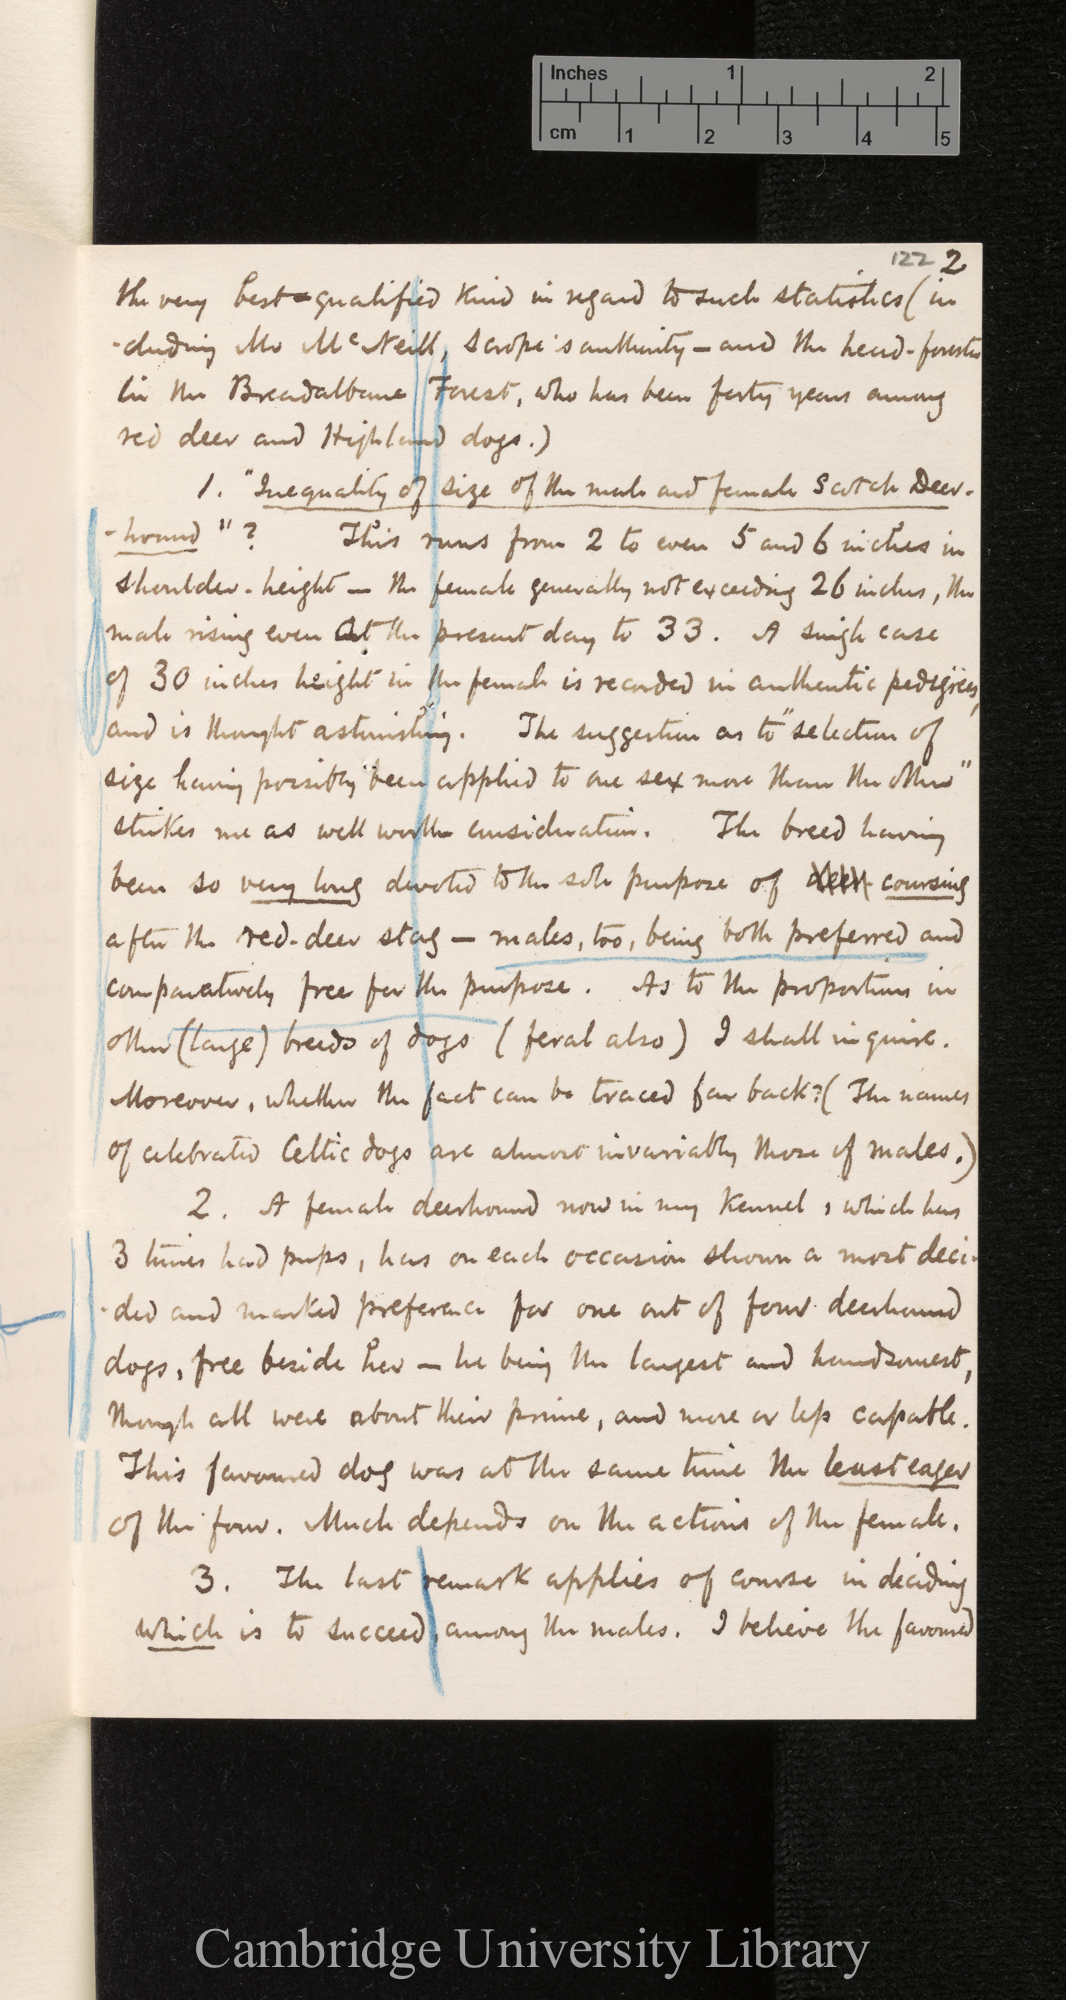 Inches 1 2
cm 1 2 3 4 5
122 2
the very best-qualified kind in regard to such statistics (in
-cluding Mr McNeill, Scrope's authority — and the head-forester
in the Breadalbane Forest, who has been forty years among
red deer and Highland dogs.)
1. "Inequality of size of the male and female Scotch Deer-
-hound"? This runs from 2 to even 5 and 6 inches in
shoulder-height — the female generally not exceeding 26 inches, the
male rising even at the present day to 33. A single case
of 30 inches height in the female is recorded in authentic pedigrees,
and is thought astonishing. The suggestion as to "selection of
size having possibly "been applied to one sex more than the other"
strikes me as well worth consideration. The breed having
been so very long devoted to the sole purpose of deer coursing
after the red-deer stag — males, too, being both preferred and
comparatively free for the purpose. As to the proportions in
other (large) breeds of dogs (feral also) I shall inquire.
Moreover, whether the fact can be traced far back? (The names
of celebrated Celtic dogs are almost invariably those of males.)
2. A female deerhound now in my kennel, which has
3 times had pups, has on each occasion shown a most deci-
-ded and marked preference for one out of four deerhound
dogs, free beside her — he being the largest and handsomest,
though all were about their prime, and more or less capable.
This favoured dog was at the same time the least eager
of the four. Much depends on the actions of the female.
3. The last remark applies of course in deciding
which is to succeed, among the males. I believe the favoured
Cambridge University Library